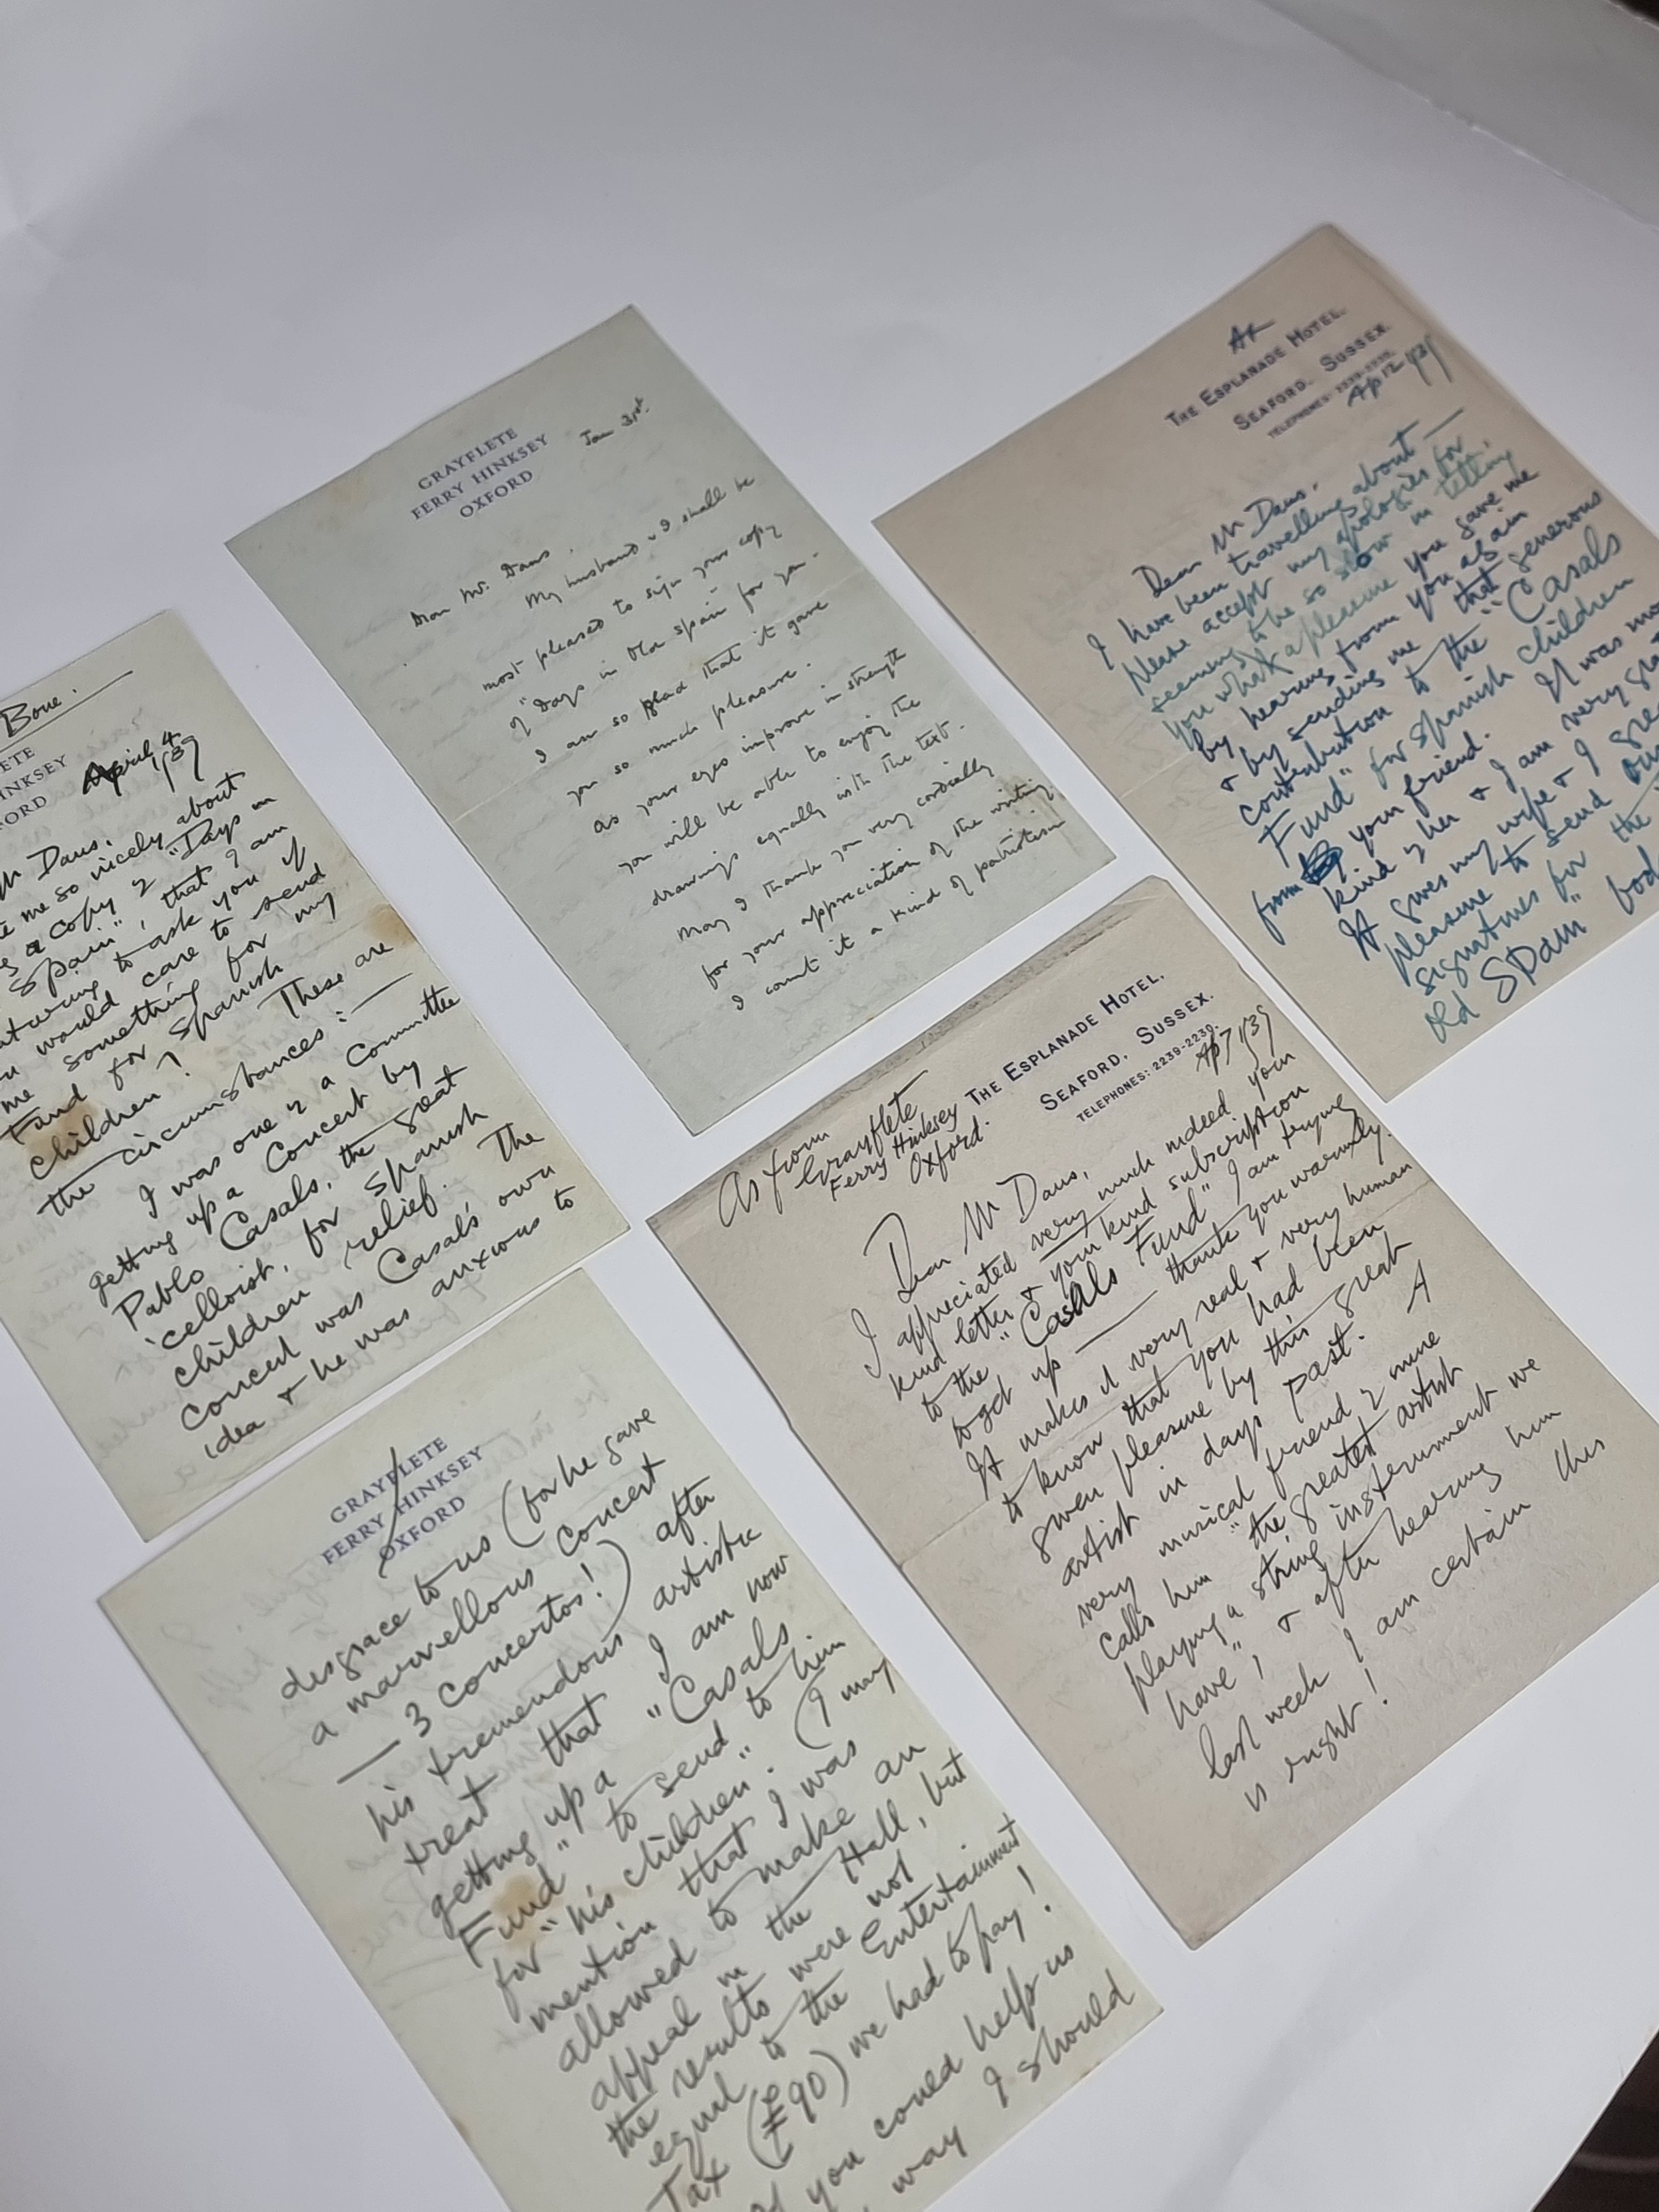 Bone.
ETE
INKSEY
ORD
April 4 1939
M Davis,
me so nicely about
a copy of "Days in
Spain", that I am
to ask you if
would care to send
me something for my
Fund for Spanish
Children? These are
the circumstances:—
I was one of a Committee
getting up a Concert by
Pablo Casals, the great
'cellist, for Spanish
children relief. The
Concert was Casals' own
idea & he was anxious to
GRAYFLETE
FERRY HINKSEY
OXFORD
Jan 31st
Dear Mr. Davis,
My husband & I shall be
most pleased to sign your copy
of "Days in Old Spain" for you.
I am so glad that it gave
you so much pleasure.
As your eyes improve in strength
you will be able to enjoy the
drawings equally with the text.
May I thank you very cordially
for your appreciation of the writing.
I count it a kind of patriotism
At
THE ESPLANADE HOTEL.
SEAFORD. SUSSEX.
TELEPHONES: 2239-2230.
Ap 12 1939
Dear M Davis,
I have been travelling about —
please accept my apologies for
seeming to be so slow in telling
you what a pleasure you gave me
by hearing from you again
& by sending me that generous
contribution to the "Casals
Fund" for Spanish children
from your friend. It was
kind of her & I am very
It gives my wife & I
pleasure to send our
signatures for the
Old Spain"
GRAYFLETE
FERRY HINKSEY
OXFORD
disgrace to us (for he gave
a marvellous Concert
— 3 Concertos!) after
his tremendous artistic
treat that I am now
getting up a "Casals
Fund" to send to him
for "his children". (I may
mention that I was
allowed to make an
appeal in the Hall, but
the results were not
equal to the Entertainment
Tax (£90) we had to pay!
you could help us
way I should
As from
Grayflete
Ferry Hinksey
Oxford.
THE ESPLANADE HOTEL.
SEAFORD. SUSSEX.
TELEPHONES: 2239-2230.
Ap 7 1939
Dear M Davis,
I appreciated very much indeed your
kind letter & your kind subscription
to the "Casals Fund" I am trying
to get up — thank you warmly.
It makes it very real & very human
to know that you had been
given pleasure by this great
artist in days past. A
very musical friend of mine
calls him "the greatest artist
playing a string instrument we
have", & after hearing him
last week I am certain this
is right!